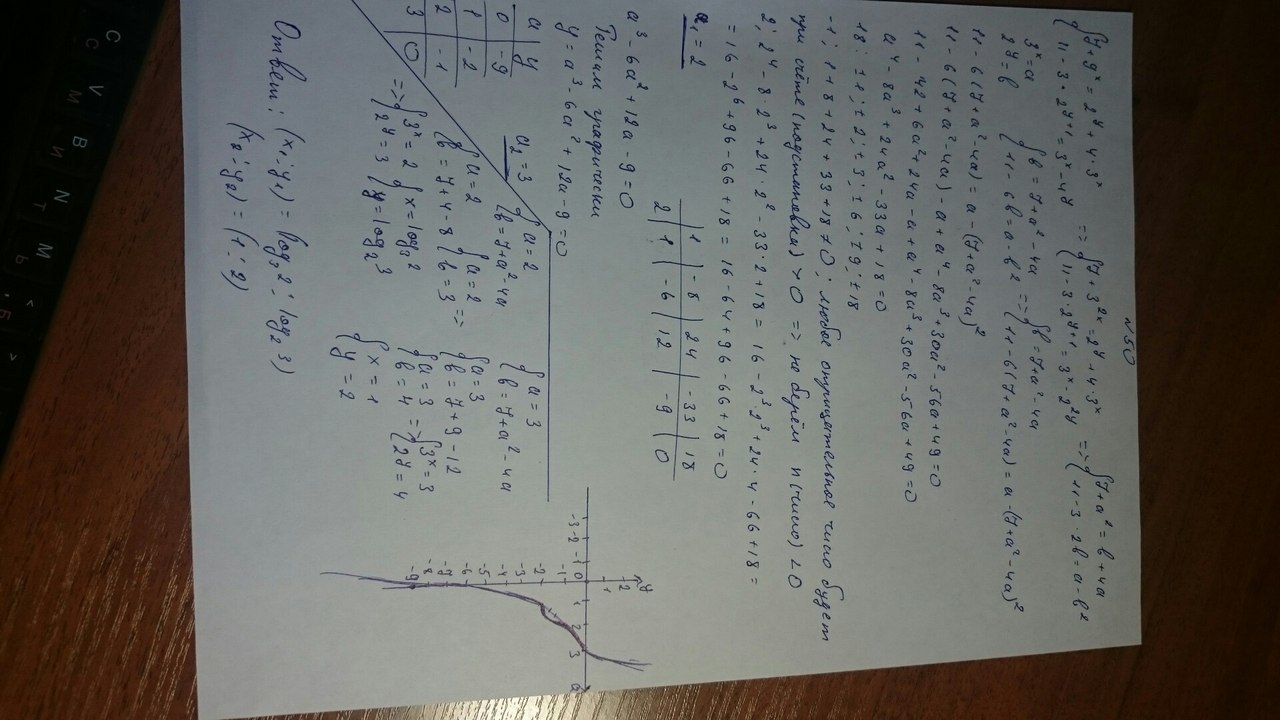 N 50
{ 7 + 9^x = 2^y + 4·3^x
{ 11 - 3·2^{y+1} = 3^x - 4^y
=> { 7 + 3^{2x} = 2^y + 4·3^x
{ 11 - 3·2^{y+1} = 3^x - 2^{2y}
=> { 7 + a² = b + 4a
{ 11 - 3·2b = a - b²
3^x = a
2^y = b
{ b = 7 + a² - 4a
{ 11 - 6b = a - b²
=> { b = 7 + a² - 4a
{ 11 - 6(7 + a² - 4a) = a - (7 + a² - 4a)²
11 - 6(7 + a² - 4a) = a - (7 + a² - 4a)²
11 - 6(7 + a² - 4a) - a + a⁴ - 8a³ + 30a² - 56a + 49 = 0
11 - 42 + 6a² + 24a - a + a⁴ - 8a³ + 30a² - 56a + 49 = 0
a⁴ - 8a³ + 24a² - 33a + 18 = 0
18: ±1; ±2; ±3; ±6; ±9; ±18
-1; 1 + 8 + 24 + 33 + 18 ≠ 0; любое отрицательное число будет
при счёте (подстановки) > 0 => не берём n (число) < 0
2; 2⁴ - 8·2³ + 24·2² - 33·2 + 18 = 16 - 2³·2³ + 24·4 - 66 + 18 =
= 16 - 2⁶ + 96 - 66 + 18 = 16 - 64 + 96 - 66 + 18 = 0
a₁ = 2
1 | -8 | 24 | -33 | 18
2 | 1 | -6 | 12 | -9 | 0
a³ - 6a² + 12a - 9 = 0
Решим графически
y = a³ - 6a² + 12a - 9 = 0
a | y
0 | -9
1 | -2
2 | -1
3 | 0
a₂ = 3
{ a = 2
{ b = 7 + a² - 4a
{ a = 2
{ b = 7 + 4 - 8
{ a = 2
{ b = 3
=>
=> { 3^x = 2
{ 2^y = 3
{ x = log₃2
{ y = log₂3
{ a = 3
{ b = 7 + a² - 4a
{ a = 3
{ b = 7 + 9 - 12
{ a = 3
{ b = 4
=> { 3^x = 3
{ 2^y = 4
{ x = 1
{ y = 2
y
2
1
-3 -2 -1 0 1 2 3 a
-1
-2
-3
-4
-5
-6
-7
-8
-9
Ответ: (x₁; y₁) = log₃2; log₂3)
(x₂; y₂) = (1; 2)
C V B N M <
С М И Т Ь Б >